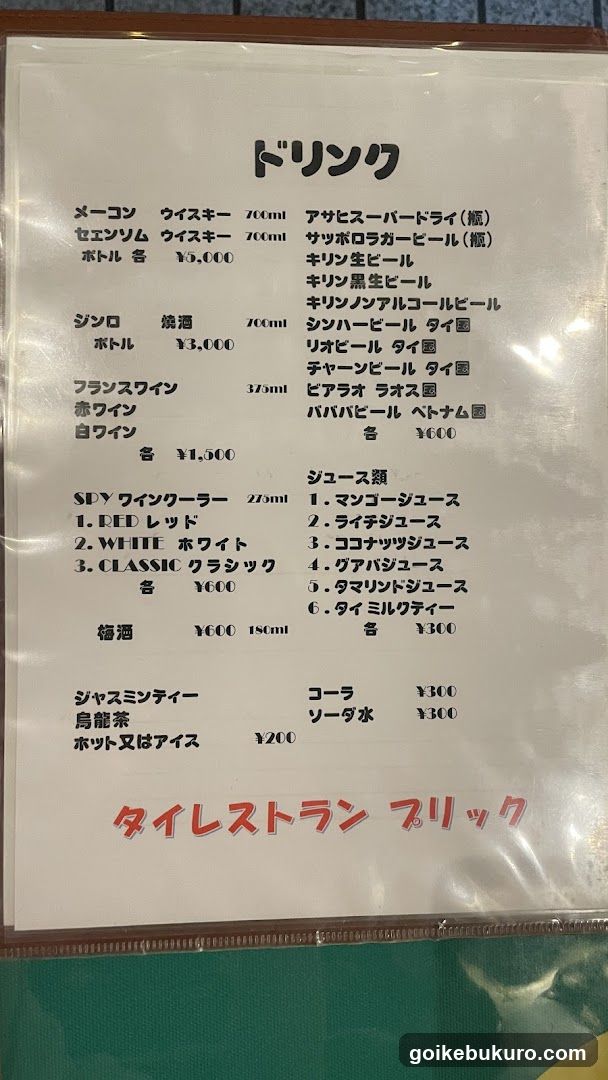 ドリンク
メーコン ウイスキー 700ml
セェンソム ウイスキー 700ml
ボトル 各 ¥5,000
ジンロ 焼酒 700ml
ボトル ¥3,000
フランスワイン 375ml
赤ワイン
白ワイン
各 ¥1,500
SPY ワインクーラー 275ml
1. RED レッド
2. WHITE ホワイト
3. CLASSIC クラシック
各 ¥600
梅酒 ¥600 180ml
ジャスミンティー
烏龍茶
ホット又はアイス ¥200
アサヒスーパードライ(瓶)
サッポロラガービール(瓶)
キリン生ビール
キリン黒生ビール
キリンノンアルコールビール
シンハービール タイ国
リオビール タイ国
チャーンビール タイ国
ビアラオ ラオス国
バババビール ベトナム国
各 ¥600
ジュース類
1.マンゴージュース
2.ライチジュース
3.ココナッツジュース
4.グアバジュース
5.タマリンドジュース
6.タイミルクティー
各 ¥300
コーラ ¥300
ソーダ水 ¥300
タイレストラン プリック
goikebukuro.com